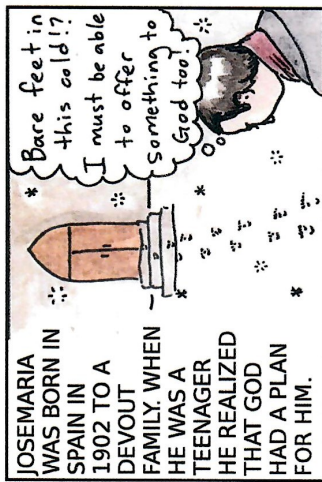 JOSEMARIA
WAS BORN IN
SPAIN IN
1902 TO A
DEVOUT
FAMILY. WHEN
HE WAS A
TEENAGER
HE REALIZED
THAT GOD
HAD A PLAN
FOR HIM.
Bare feet in
this cold!?
I must be able
to offer
something to
God too!